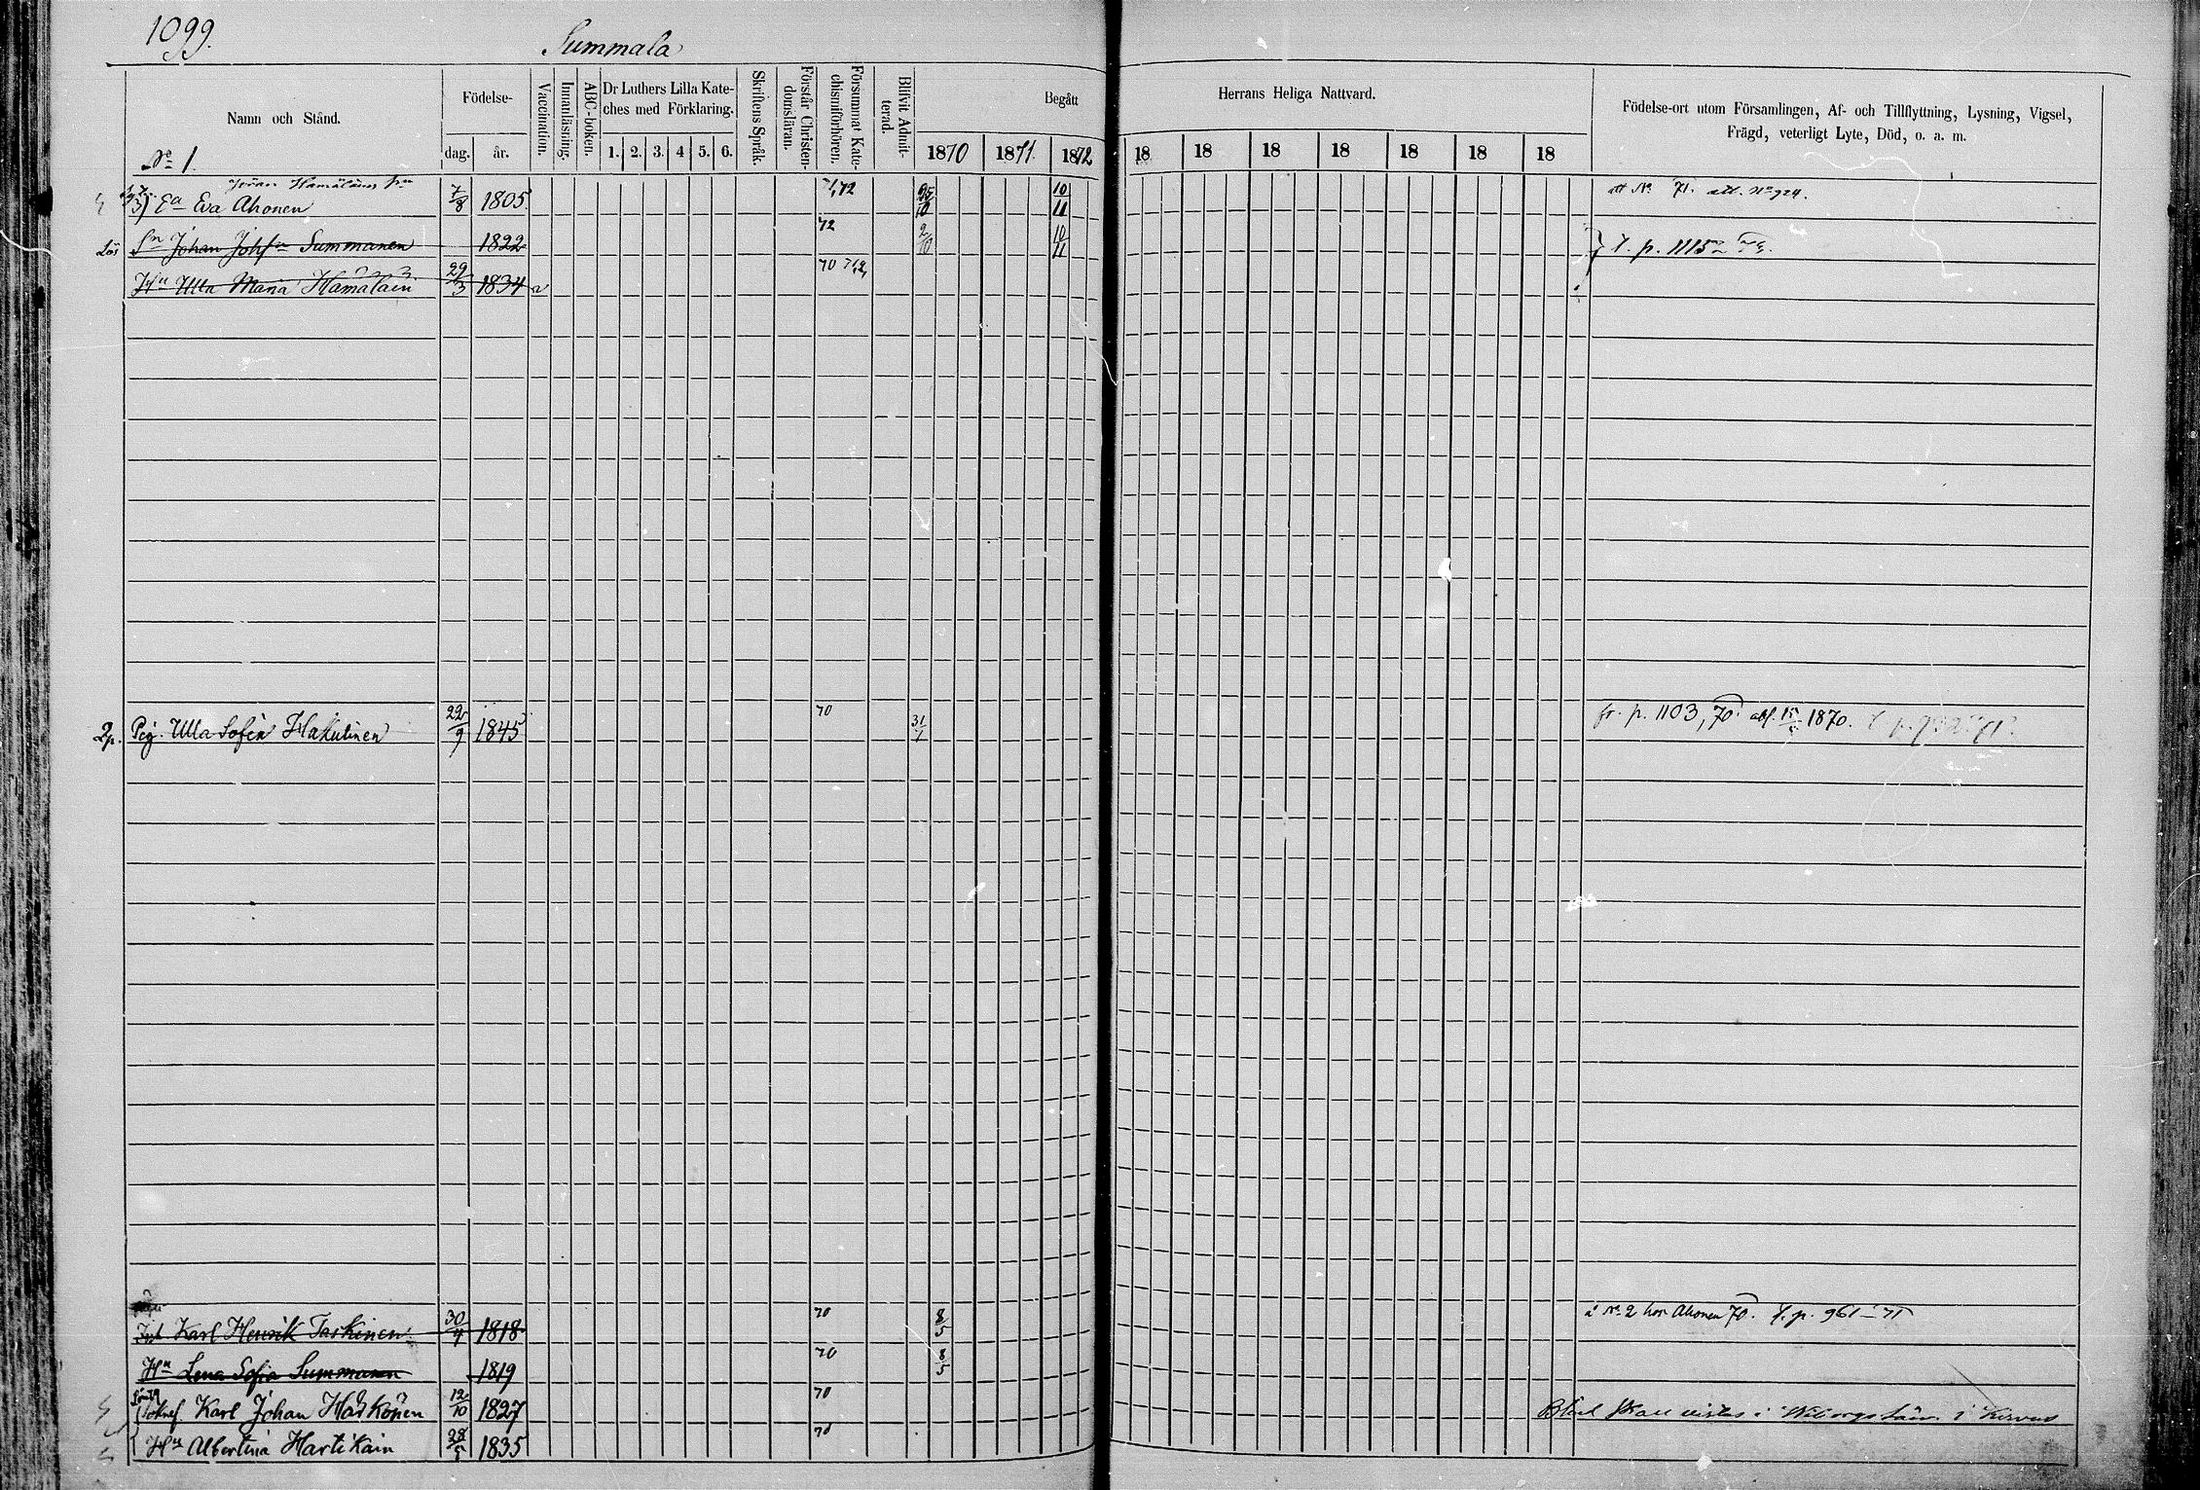 1099.
Summala
Namn och Stånd.
Födelse-
dag.
år.
Vaccination.
Innanläsning.
ABC-boken.
Dr Luthers Lilla Kate-
ches med Förklaring.
1. 2. 3. 4 5. 6.
Skriftens Språk.
Förstår Christen-
domsläran.
Försummat Kate-
chismiförhören.
Blifvit Admit-
terad.
Begått
Herrans Heliga Nattvard.
1870 1871. 1872 18 18 18 18 18 18 18
Födelse-ort utom Församlingen, Af- och Tillflyttning, Lysning, Vigsel,
Frägd, veterligt Lyte, Död, o. a. m.
No 1.
Göran Hamäläins
Ea Eva Ahonen 7/8 1805 71,72 25/10 10/11 att No 71. att. No 924.
Lös Sn Johan Johsn Summanen 1822 72 2/10 10/11 t. p. 1115
Hu Ulla Maria Hämäläin 29/3 1834 v 70 71,2,
2p. Pig. Ulla Sofia Hakulinen 22/9 1845 70 31/1 fr. p. 1103, 70. abf. 15 1870.
Karl Henrik Taskinen 30/4 1818 70 8/5 i No 2 hos Ahonen 70. t. p. 961–71
Hu Lena Sofia Summanen 1819 70 8/5
Karl Johan Härkönen 12/10 1827 70 skall vistas i Wiborgs län i
Hu Albertina Hartikain 28 1835 70